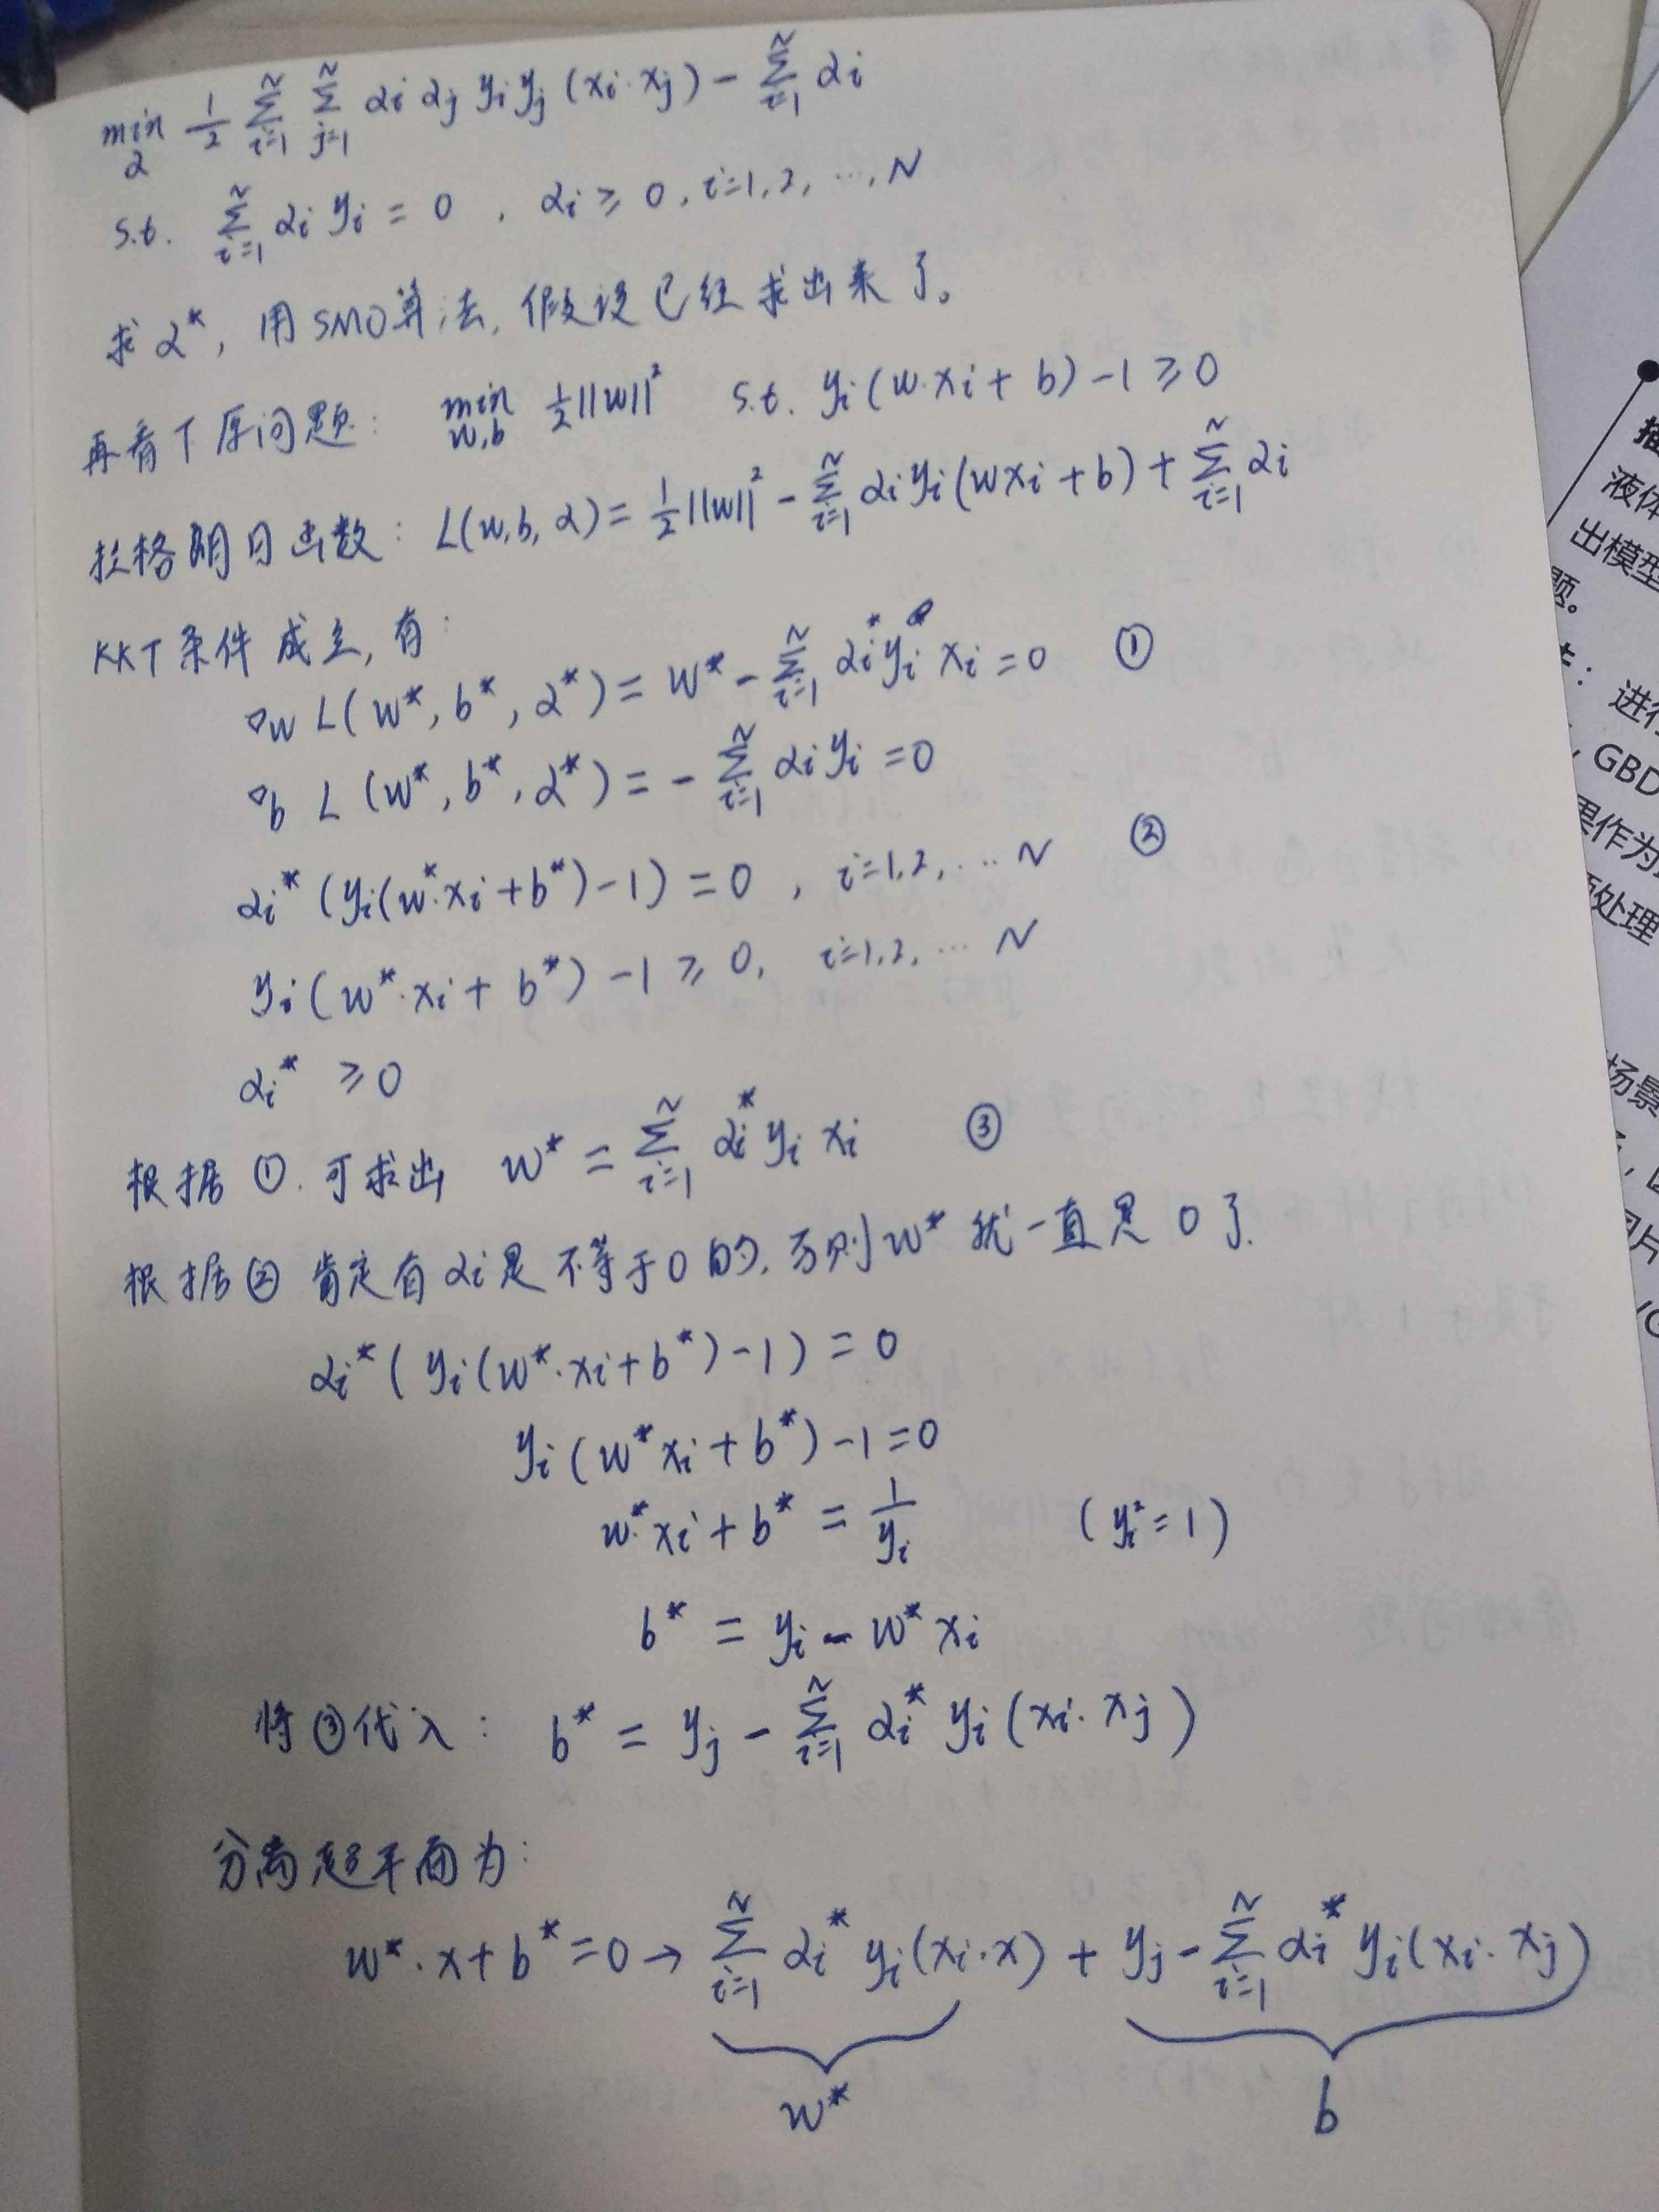 min_α 1/2 Σ_{i=1}^N Σ_{j=1}^N αi αj yi yj (xi·xj) − Σ_{i=1}^N αi
s.t. Σ_{i=1}^N αi yi = 0 , αi ≥ 0, i=1,2, …, N
求 α*, 用SMO算法, 假设已经求出来了。
再看下原问题: min_{w,b} 1/2||w||² s.t. yi(w·xi + b) −1 ≥ 0
拉格朗日函数: L(w,b,α) = 1/2||w||² − Σ_{i=1}^N αi yi(wxi + b) + Σ_{i=1}^N αi
KKT条件成立, 有:
∇w L(w*, b*, α*) = w* − Σ_{i=1}^N αi* yi xi = 0 ①
∇b L(w*, b*, α*) = − Σ_{i=1}^N αi yi = 0
αi* (yi(w*·xi + b*) −1) = 0 , i=1,2, … N ②
yi(w*·xi + b*) −1 ≥ 0, i=1,2, … N
αi* ≥ 0
根据①. 可求出 w* = Σ_{i=1}^N αi* yi xi ③
根据② 肯定有αi是不等于0的, 否则w*就一直是0了.
αi*(yi(w*·xi + b*) −1) = 0
yi(w*xi + b*) −1 = 0
w*·xi + b* = 1/yi (yi² = 1)
b* = yi − w*xi
将③代入: b* = yj − Σ_{i=1}^N αi* yi(xi·xj)
分离超平面为:
w*·x + b* = 0 → Σ_{i=1}^N αi* yi(xi·x) + yj − Σ_{i=1}^N αi* yi(xi·xj)
w* b
液体
出模型
题。
: 进行
, GBD
果作为
处理
场景